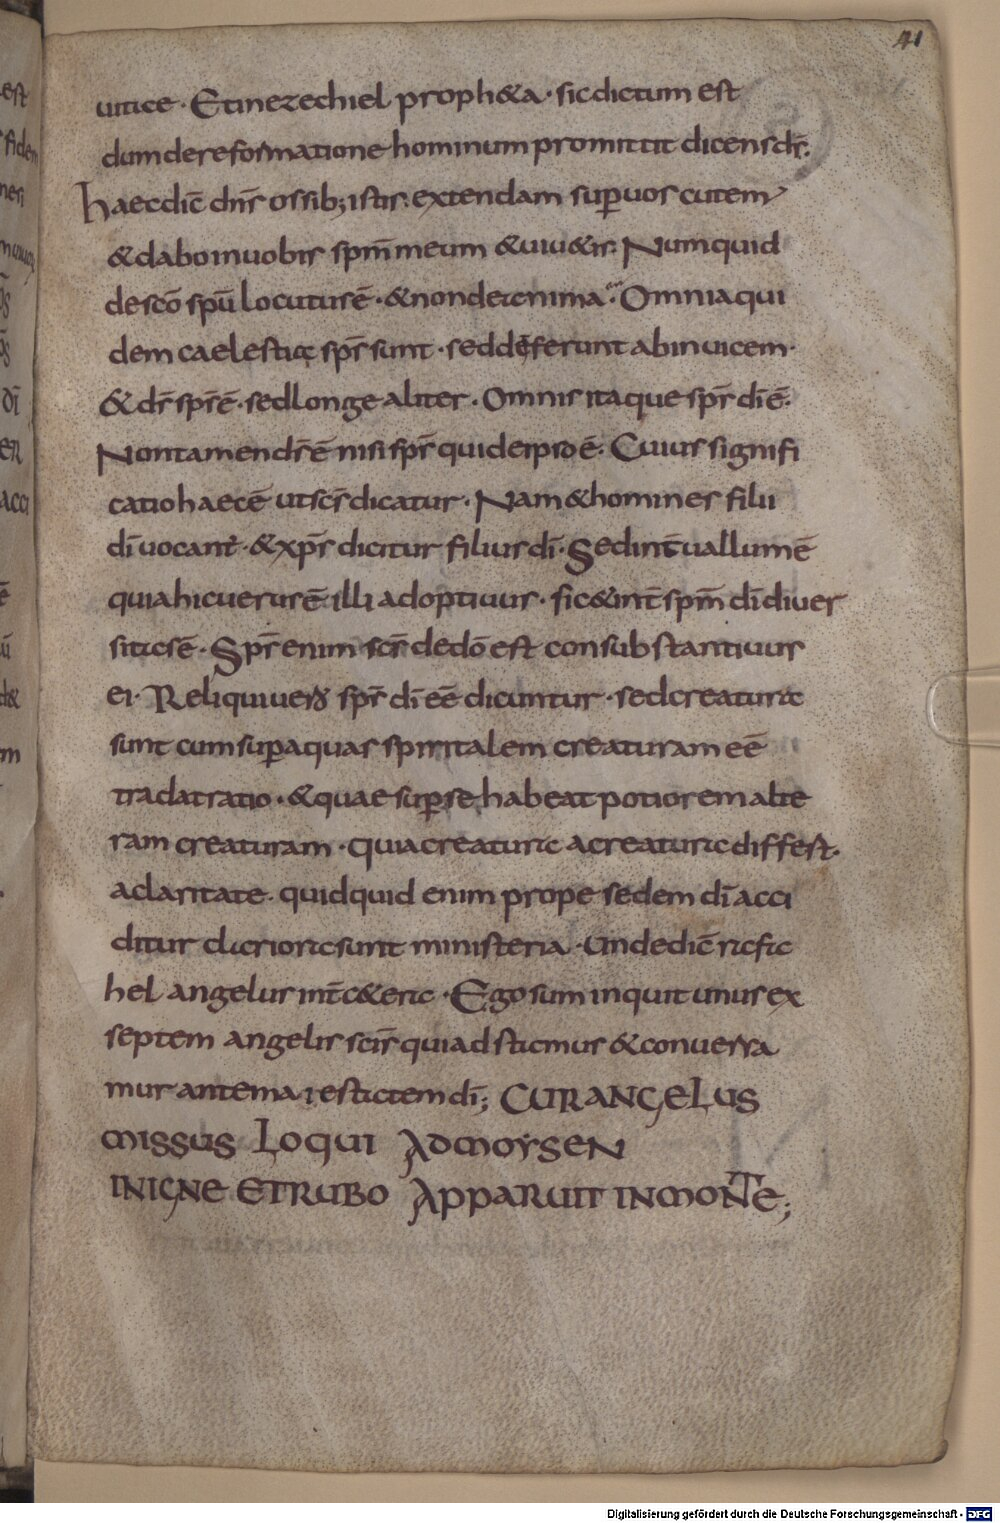 41
uitae · Et in ezechiel proph&a · sic dictum est
dum de reformatione hominum promittit dicens dr̄s.
haec dic̄ dn̄s ossib; istis. extendam sup̱ uos cutem
& dabo in uobis sp̄m meum & uiu&is. Numquid
de sc̄o sp̄u locutus ē · & non de anima · Omnia qui
dem caelestia sp̄s sunt · sed differunt ab inuicem ·
& d̄s sp̄s ē · sed longe aliter · Omnis itaque sp̄s dī ē.
Non tamen d̄s ē nisi sp̄s qui de ipso ē · Cuius signifi
catio haec ē ut sc̄s dicatur · Nam & homines filii
dī uocant̄ · & xp̄s dicitur filius dī · Sed int̄uallum ē
quia hic uerus ē illi adoptiuus · sic & int̄ sp̄m dī diuer
sitas ē · Sp̄s enim sc̄s de dō est consubstantiuus
ei · Reliqui uero sp̄s dī eē dicuntur · sed creaturae
sunt cum sup̱ aquas spiritalem creaturam eē
tradat ratio · & quae sup̱ se habeat potiorem alte
ram creaturam · quia creatura a creatura differt ·
a claritate · quidquid enim prope sedem dī acci
ditur clariora sunt ministeria · unde dic̄ rafa
hel angelus int̄ c&era · Ego sum inquit unus ex
septem angelis sc̄is qui adstamus & conuersa
mur ante maiestatem dī; CUR ANGELUS
MISSUS LOQUI AD MOYSEN
IN IGNE ET RUBO APPARUIT IN MONTE;
Digitalisierung gefördert durch die Deutsche Forschungsgemeinschaft - DFG